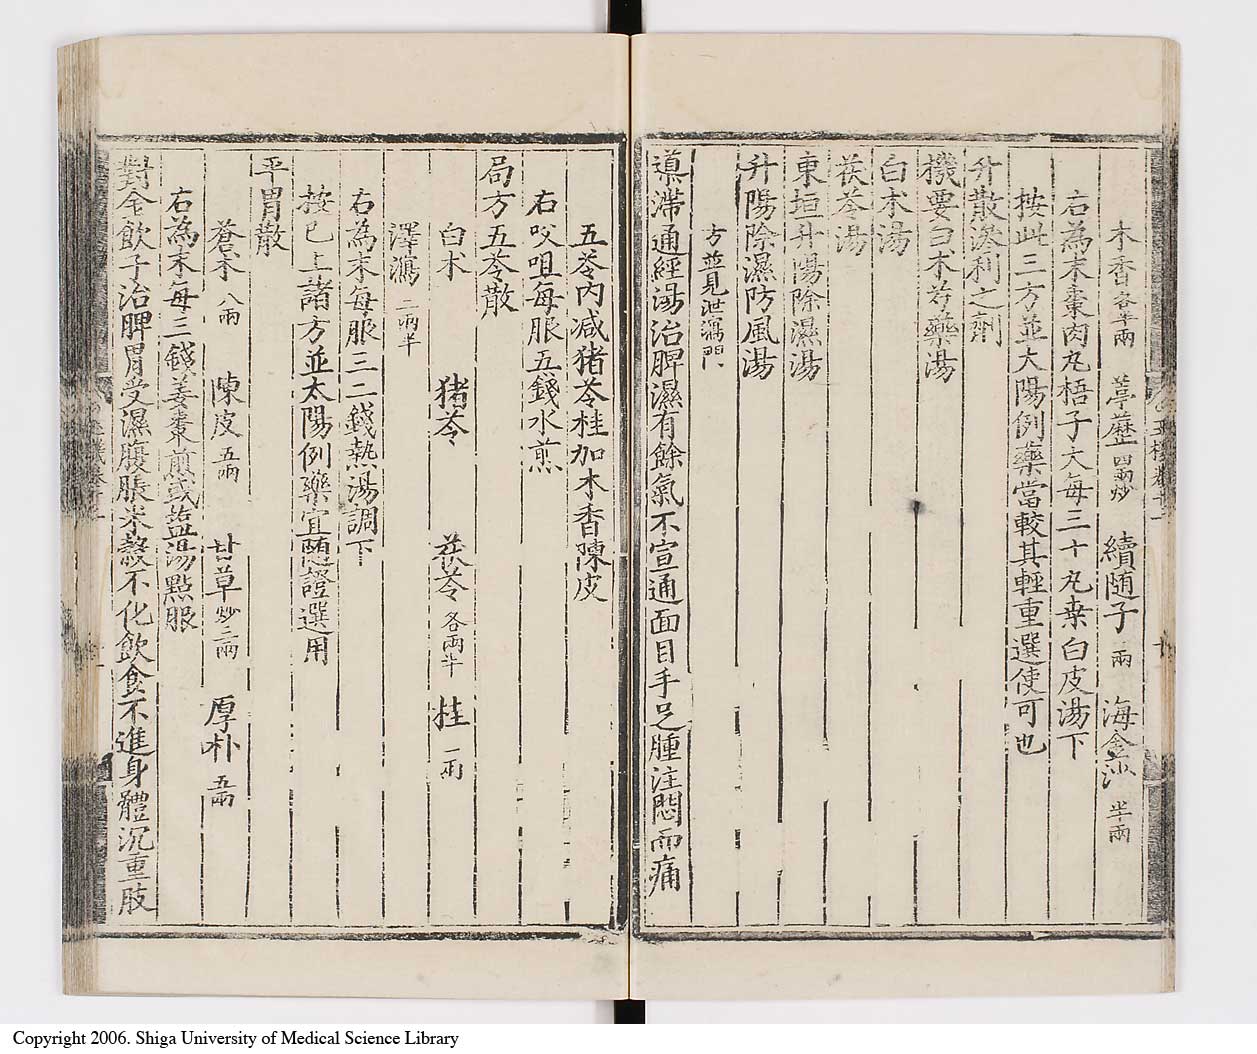 木香各半兩 葶藶四兩炒 續随子一兩 海金沙半兩
右為末棗肉丸梧子大每三十丸桒白皮湯下
按此三方並大陽例藥當較其輕重選使可也
升散滲利之劑
機要白术芍藥湯
白术湯
茯苓湯
東垣升陽除濕湯
升陽除濕防風湯
方並見泄瀉門
導滯通經湯治脾濕有餘氣不宣通面目手足腫注悶而痛
五苓內減猪苓桂加木香陳皮
右㕮咀每服五錢水煎
局方五苓散
白术 猪苓 茯苓各兩半 桂一兩
澤瀉二兩半
右為末每服三二錢熱湯調下
按已上諸方並太陽例藥宜随證選用
平胃散
蒼术八兩 陳皮五兩 甘草炒三兩 厚朴五兩
右為末每三錢姜棗煎或盐湯點服
對金飲子治脾胃受濕腹脹米穀不化飲食不進身體沉重肢
Copyright 2006. Shiga University of Medical Science Library